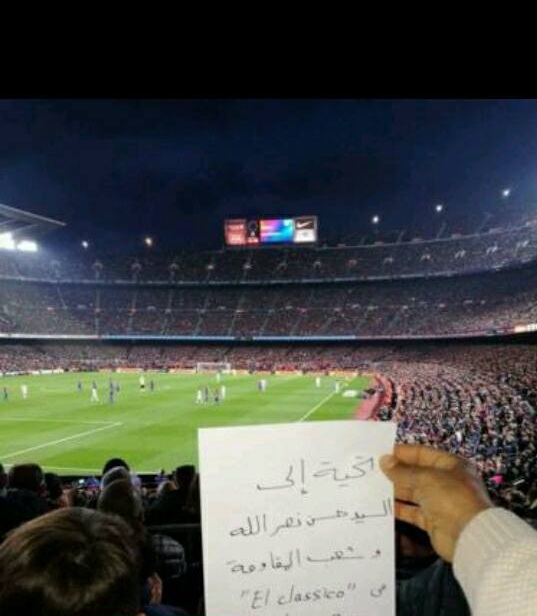 تحية إلى
السيد حسن نصر الله
و شعب المقاومة
من "El classico"